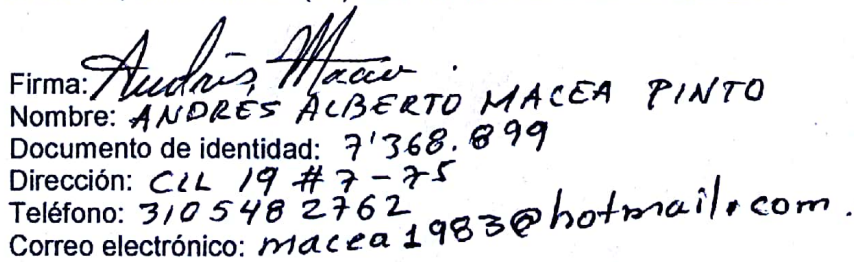 Firma: Andrés Macea.
Nombre: ANDRES ALBERTO MACEA PINTO
Documento de identidad: 7'368.899
Dirección: CLL 19 # 7-75
Teléfono: 310 548 2762
Correo electrónico: macea1983@hotmail.com.